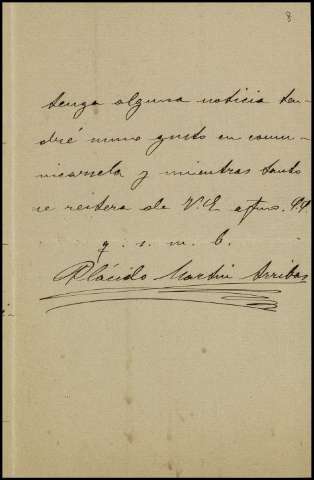 8
tenga alguna noticia ten-
dré sumo gusto en comu-
nicarsela y mientras tanto
se reitera de V.E. afmo. SS.
q. s. m. b.
Plácido Martin Arribas